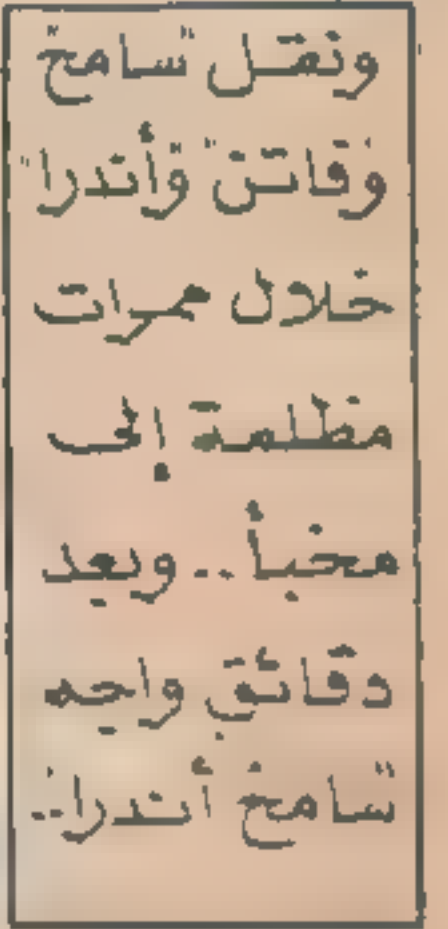 ونقل "سامح"
وفاتن" و"أندرا"
خلال ممرات
مظلمة إلى
مخبأ .. وبعد
دقائق واجه
"سامح أندرا..